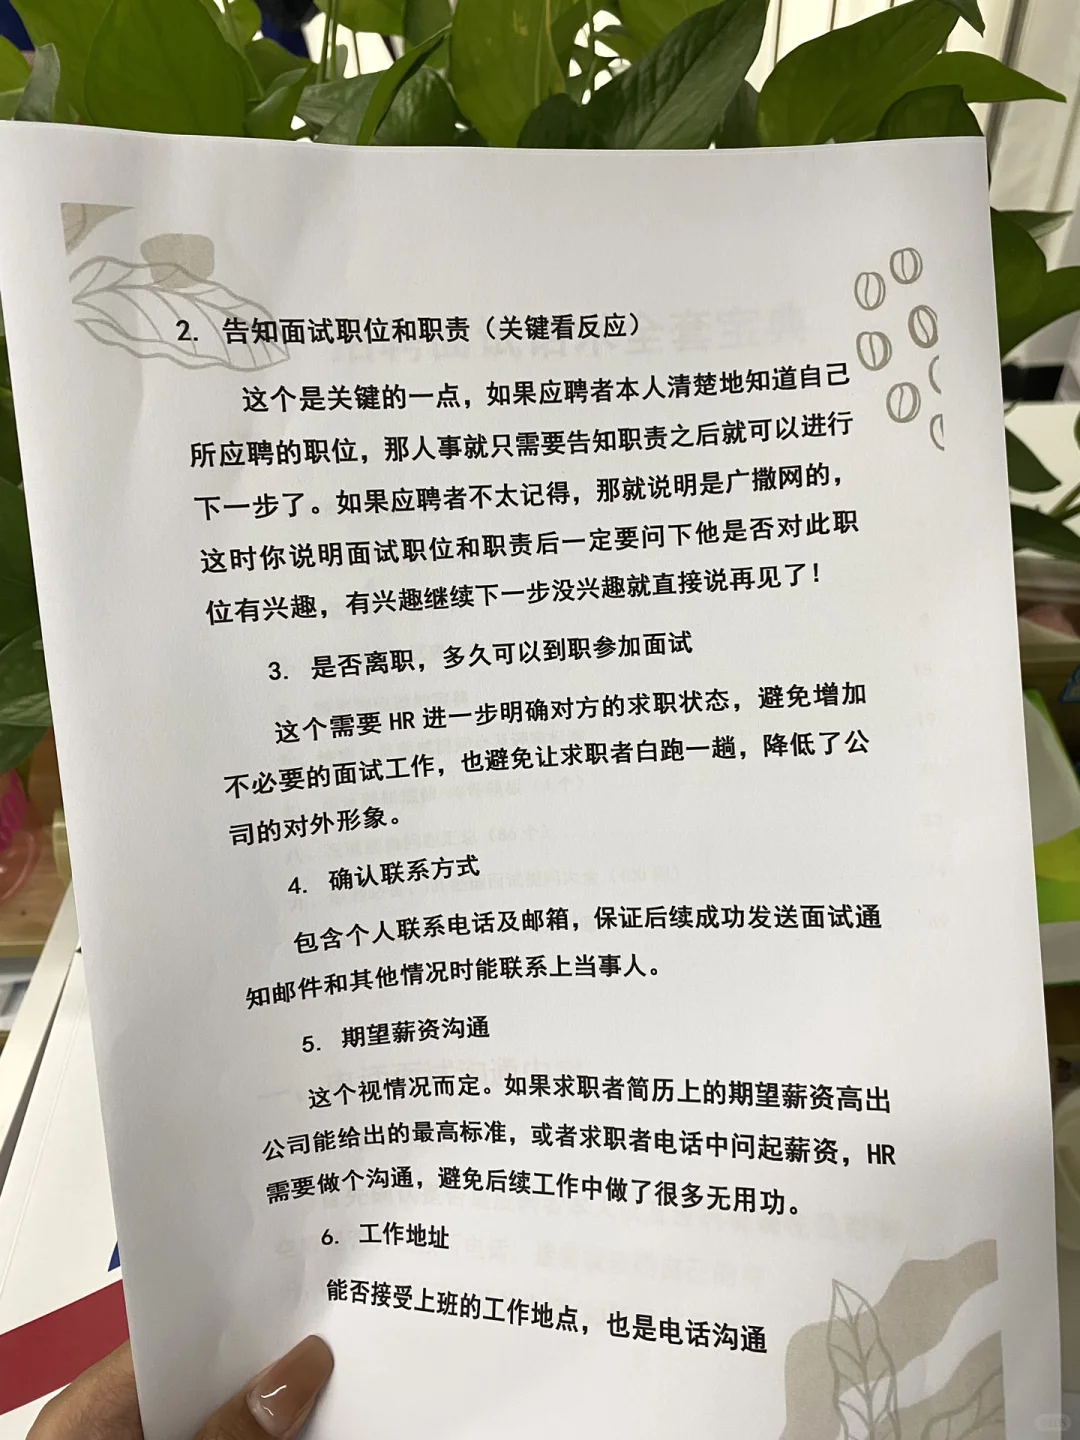 2. 告知面试职位和职责（关键看反应）
这个是关键的一点，如果应聘者本人清楚地知道自己
所应聘的职位，那人事就只需要告知职责之后就可以进行
下一步了。如果应聘者不太记得，那就说明是广撒网的，
这时你说明面试职位和职责后一定要问下他是否对此职
位有兴趣，有兴趣继续下一步没兴趣就直接说再见了！
3. 是否离职，多久可以到职参加面试
这个需要 HR 进一步明确对方的求职状态，避免增加
不必要的面试工作，也避免让求职者白跑一趟，降低了公
司的对外形象。
4. 确认联系方式
包含个人联系电话及邮箱，保证后续成功发送面试通
知邮件和其他情况时能联系上当事人。
5. 期望薪资沟通
这个视情况而定。如果求职者简历上的期望薪资高出
公司能给出的最高标准，或者求职者电话中问起薪资，HR
需要做个沟通，避免后续工作中做了很多无用功。
6. 工作地址
能否接受上班的工作地点，也是电话沟通